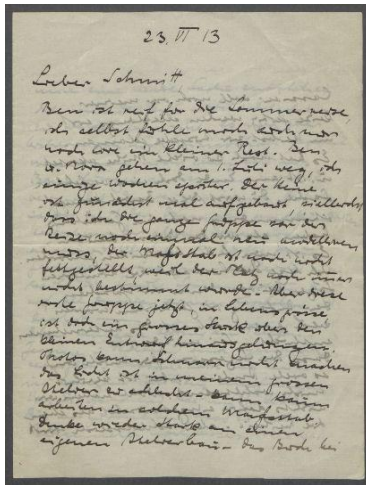 23. VI 13
Lieber Schmitt
Benn ist reif für die Sommerreise,
ich selbst fühle mich auch nur
noch wie ein kleiner Rest. Ben
u. Nora gehen am 1. Juli weg, ich
einige Wochen später. Der
ist zunächst mal aufgebaut, vielleicht
dass ich die ganze Gruppe vor der
Reise noch einmal neu modellieren
muss, der Maßstab ist noch nicht
festgestellt, weil der Platz noch immer
nicht bestimmt wurde. Aber diese
erste Gruppe jetzt, in Lebensgrösse
ist doch ein grosses Stück über den
kleinen Entwurf hinausgedrungen
Photos kann nicht machen
das Licht ist in meinem grossen
Atelier zu schlecht - kann kaum
arbeiten in solchem Maßstab
denke wieder stark an einen
eigenen Atelierbau - das Bode bei